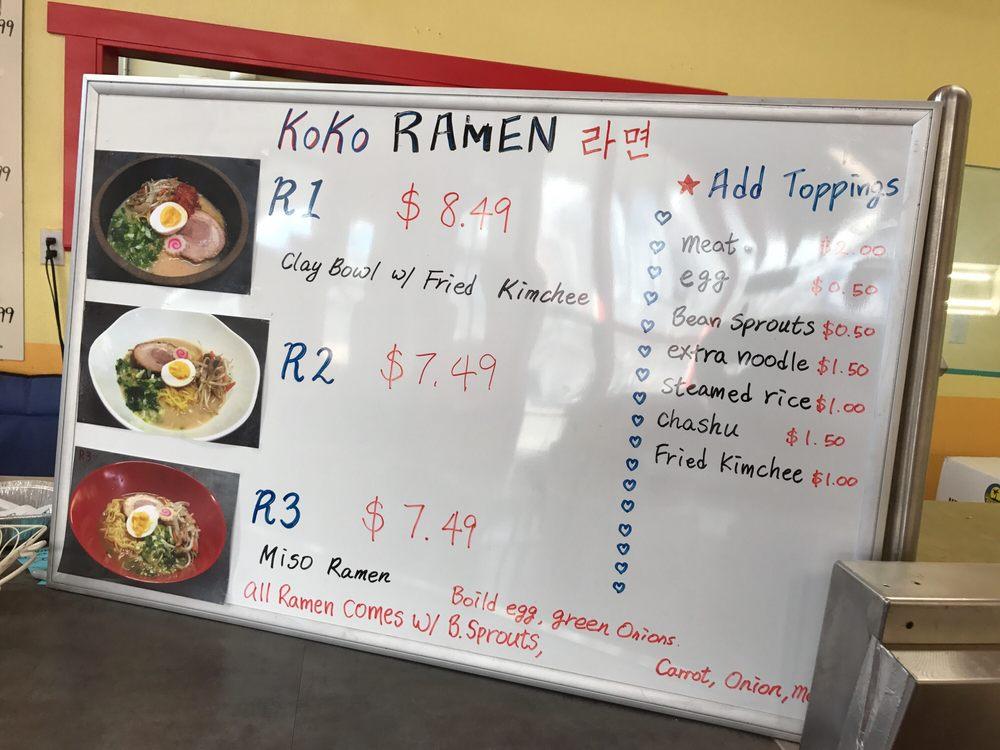 KoKo RAMEN 라면
R1 $8.49
Clay Bowl w/ Fried Kimchee
R2 $7.49
R3 $7.49
Miso Ramen
all Ramen comes w/ B.Sprouts,
Boild egg, green Onions.
Carrot, Onion,
★ Add Toppings
meat $2.00
egg $0.50
Bean Sprouts $0.50
extra noodle $1.50
Steamed rice $1.00
Chashu $1.50
Fried Kimchee $1.00
R3
99
99